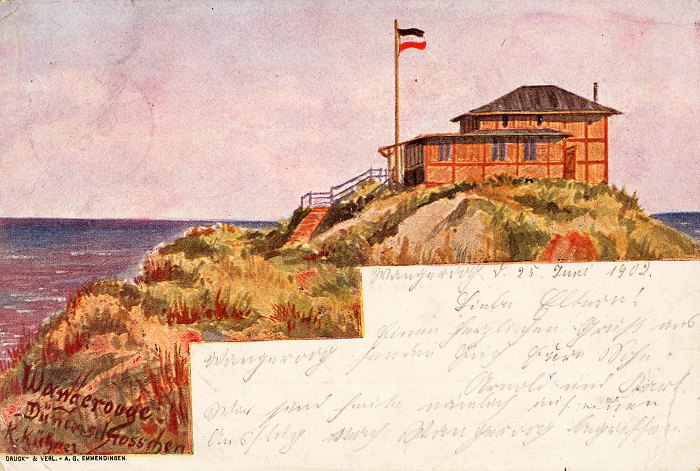 Wangeroog d. 25. Juni 1902.
Liebe Eltern!
Einen herzlichen Gruß aus
Wangeroog senden Euch Eure Söhne
Arnold und Karl.
Wir sind heute nämlich auf einem
Ausflug nach Wangeroog begriffen.
Wangerooge.
Dünenschlösschen
DRUCK- & VERL. - A. G. EMMENDINGEN.